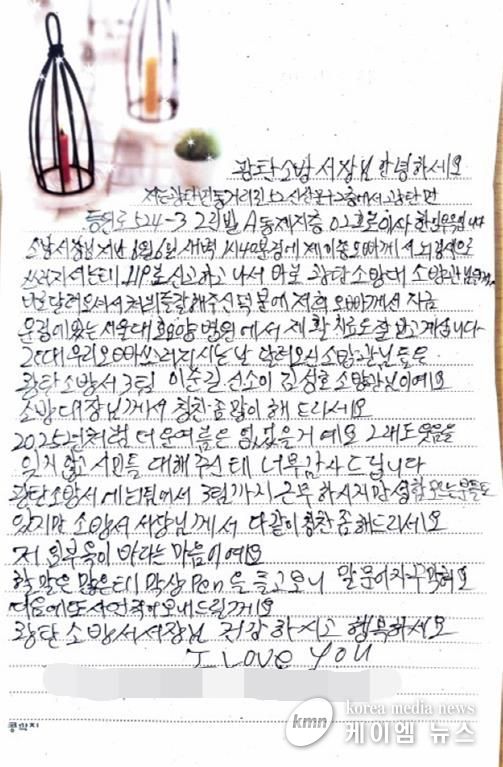 광탄소방서장님 안녕하세요
저는 광탄면 동거리 산 2층에서 광탄면
등원로 524-3 2리빌 A동 제지층 02호로 이사 한
소방서장님 지난 6일 새벽 1시40분경에 제 오빠께서 뇌경색으로
쓰러지셨는데 119로 신고하고 나서 바로 광탄소방대 소방관님
달려오셔서 처치를 잘해주신 덕분에 저희 오빠께서 지금
문경에 있는 서울대효요양병원에서 재활치료도 잘 받고 계십니다
그런대 우리오빠 쓰러지시는 날 달려오신 소방관님들은
광탄소방서 3팀 이순길 선소이 김성호 소방관님이예요
소방대장님께서 칭찬 좀 많이 해 드리세요
2025년처럼 더운 여름은 없었을거예요 그래도 웃음을
잊지않고 시민들 대해주신테 너무 감사드립니다
광탄소방서에 1팀에서 3팀까지 근무하시지만
있지만 소방서 서장님께서 다같이 칭찬 좀 해드리세요
저 원부옥이 바라는 마음이예요
할 말은 많은데 막상 Pen을 들고보니 말문이 자꾸막혀요
다음에 또 사연 적어 보내드릴께요
광탄소방서서장님 건강하시고 행복하세요
I Love You
공학지
kmn
korea media news
케이엠 뉴스